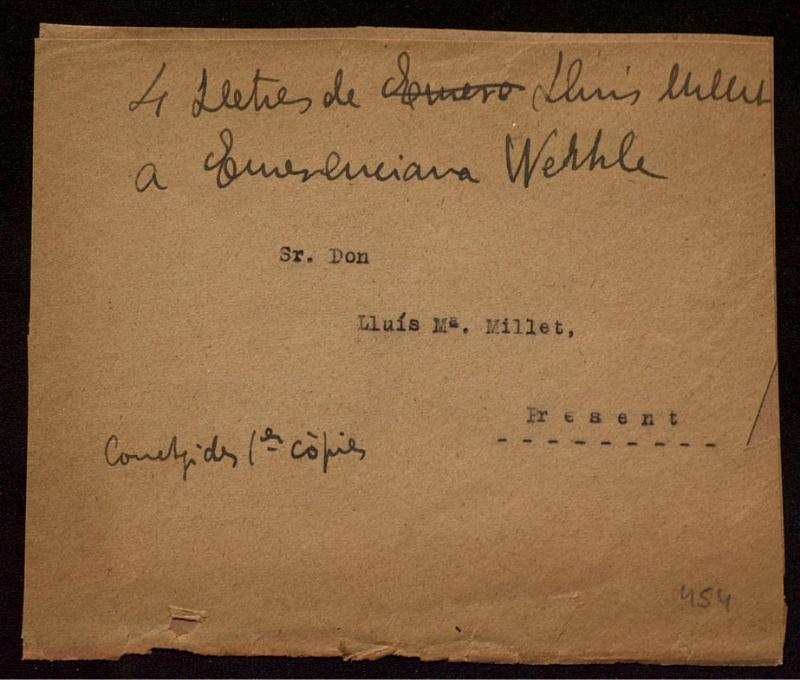 4 Lletres de ~~Emero~~ Lluis Millet
a Emerenciana Wehrle
Sr. Don
Lluís Mª. Millet,
Present
Corretgides 1es còpies
454